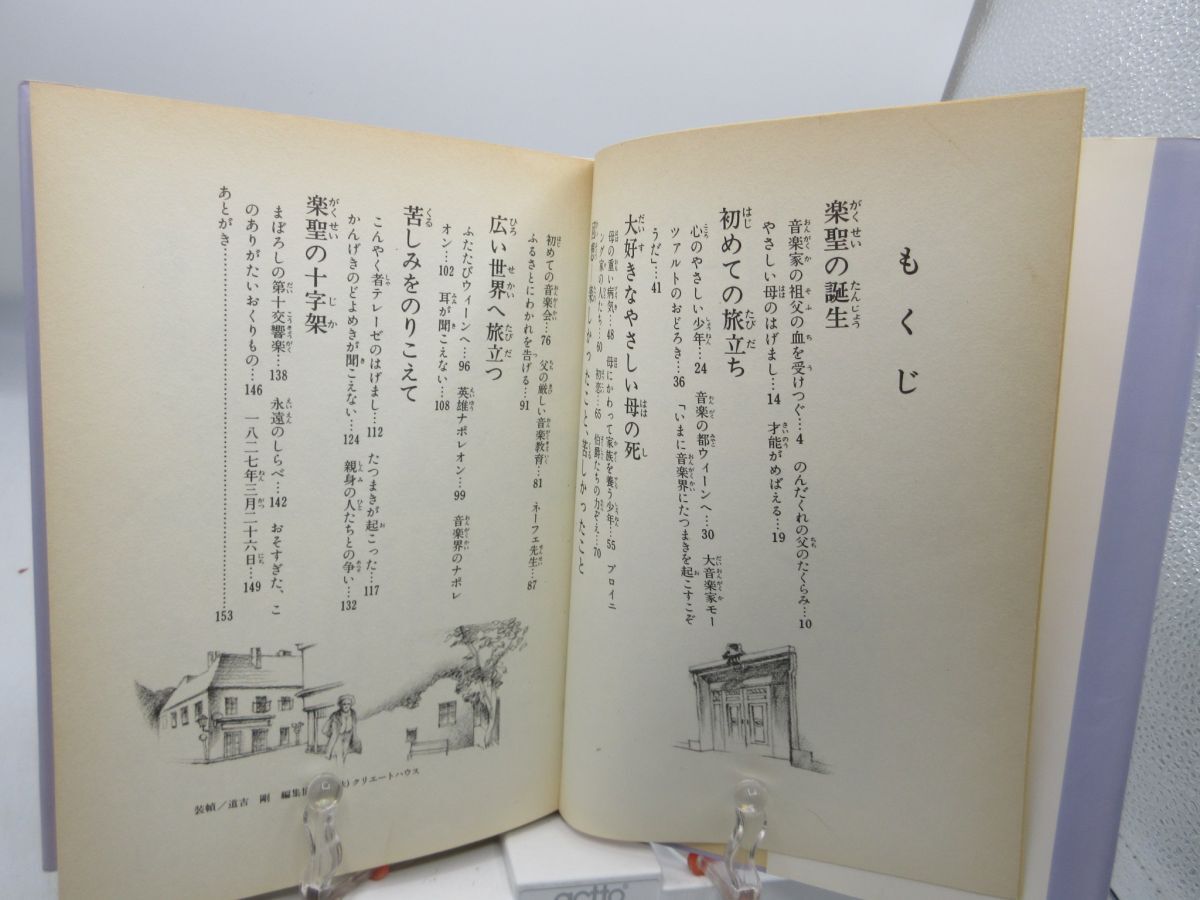 もくじ
楽聖の誕生
音楽家の祖父の血を受けつぐ…4　のんだくれの父のたくらみ…10
やさしい母のはげまし…14　才能がめばえる…19
初めての旅立ち
心のやさしい少年…24　音楽の都ウィーンへ…30　大音楽家モー
ツァルトのおどろき…36　「いまに音楽界にたつまきを起こすこぞ
うだ」…41
大好きなやさしい母の死
母の重い病気…48　母にかわって家族を養う少年…55　ブロイニ
ング家の人たち…60　初恋…65　伯爵たちの力ぞえ…70
楽しかったこと、苦しかったこと
初めての音楽会…76　父の厳しい音楽教育…81　ネーフェ先生…87
ふるさとにわかれを告げる…91
広い世界へ旅立つ
ふたたびウィーンへ…96　英雄ナポレオン…99　音楽界のナポレ
オン…102　耳が聞こえない…108
苦しみをのりこえて
こんやく者テレーゼのはげまし…112　たつまきが起こった…117
かんげきのどよめきが聞こえない…124　親身の人たちとの争い…132
楽聖の十字架
まぼろしの第十交響楽…138　永遠のしらべ…142　おそすぎた、こ
のありがたいおくりもの…146　一八二七年三月二十六日…149
あとがき…153
装幀／道吉　剛　編集
クリエートハウス
actto